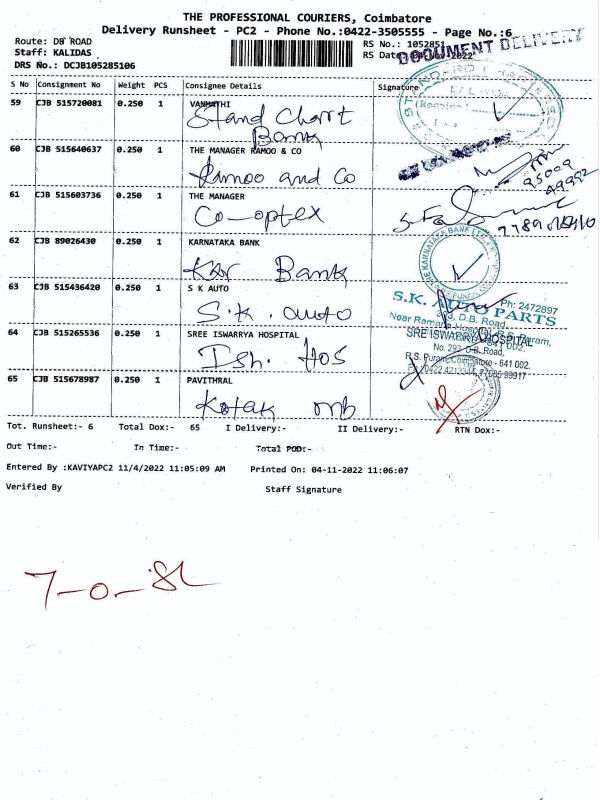 THE PROFESSIONAL COURIERS, Coimbatore
Delivery Runsheet - PC2 - Phone No.:0422-3505555 - Page No.:6
Route: DB ROAD
RS No.: 1052851
DOCUMENT DELIVERY
Staff: KALIDAS
RS Date: 04-Nov-2022
DRS No.: DCJB105285106
S No Consignment No Weight PCS Consignee Details Signature
59 CJB 515720081 0.250 1 VANMATHI
Stand Chart
Bank
60 CJB 515640637 0.250 1 THE MANAGER RAMOO & CO
Ramoo and Co
95009
49992
61 CJB 515603736 0.250 1 THE MANAGER
Co-optex
62 CJB 89026430 0.250 1 KARNATAKA BANK
Kar Bank
63 CJB 515436420 0.250 1 S K AUTO
S.K. auto
S.K. AUTO PARTS
Ph: 2472897
D.B. Road,
64 CJB 515265536 0.250 1 SREE ISWARRYA HOSPITAL
Ish. Hos
SRE ISWARRYA HOSPITAL
No. 292, D.B. Road,
R.S. Puram, Coimbatore - 641 002.
65 CJB 515678987 0.250 1 PAVITHRAL
Kotak mb
Tot. Runsheet:- 6 Total Dox:- 65 I Delivery:- II Delivery:- RTN Dox:-
Out Time:- In Time:- Total POD:-
Entered By :KAVIYAPC2 11/4/2022 11:05:09 AM Printed On: 04-11-2022 11:06:07
Verified By Staff Signature